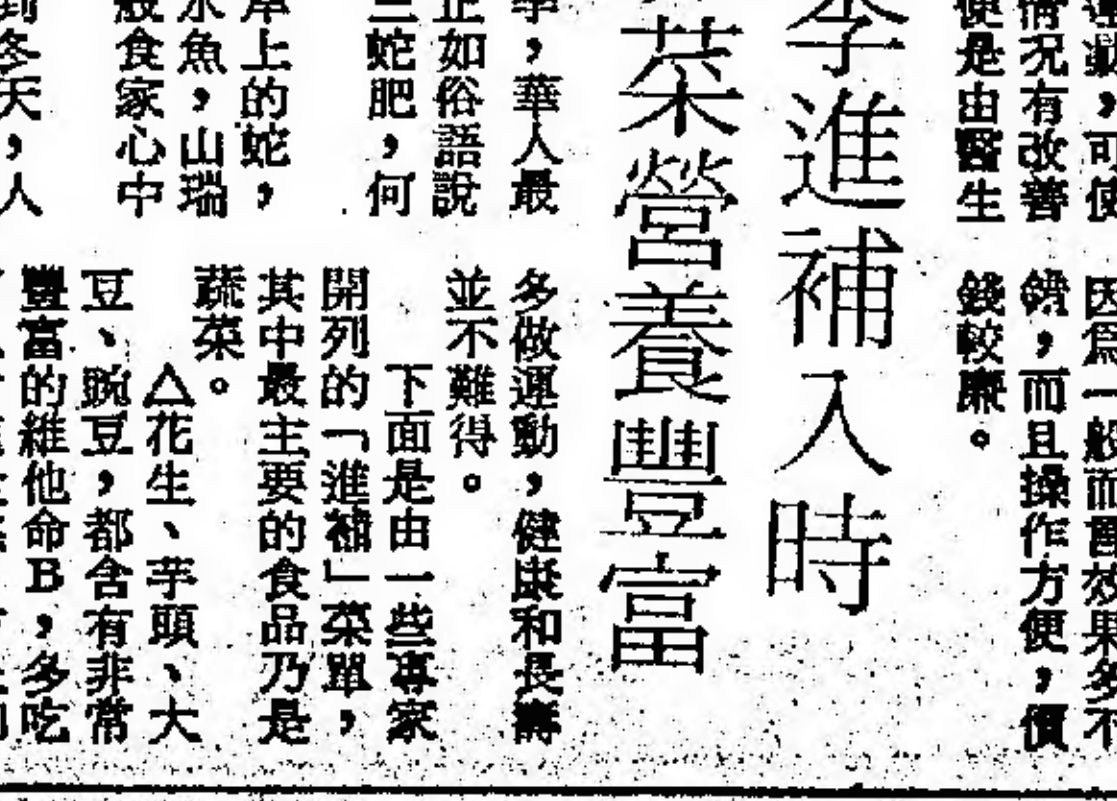 運動，可使
情況有改善
便是由醫生
因爲一般而言效果多不
錯，而且操作方便，價
錢較廉。
季進補入時
菜營養豐富
季，華人最
正如俗語說
三蛇肥，何
岸上的蛇，
水魚，山瑞
般食家心中
到冬天，人
多做運動，健康和長壽
並不難得。
下面是由一些專家
開列的「進補」菜單，
其中最主要的食品乃是
蔬菜。
△花生、芋頭、大
豆、豌豆，都含有非常
豐富的維他命B，多吃